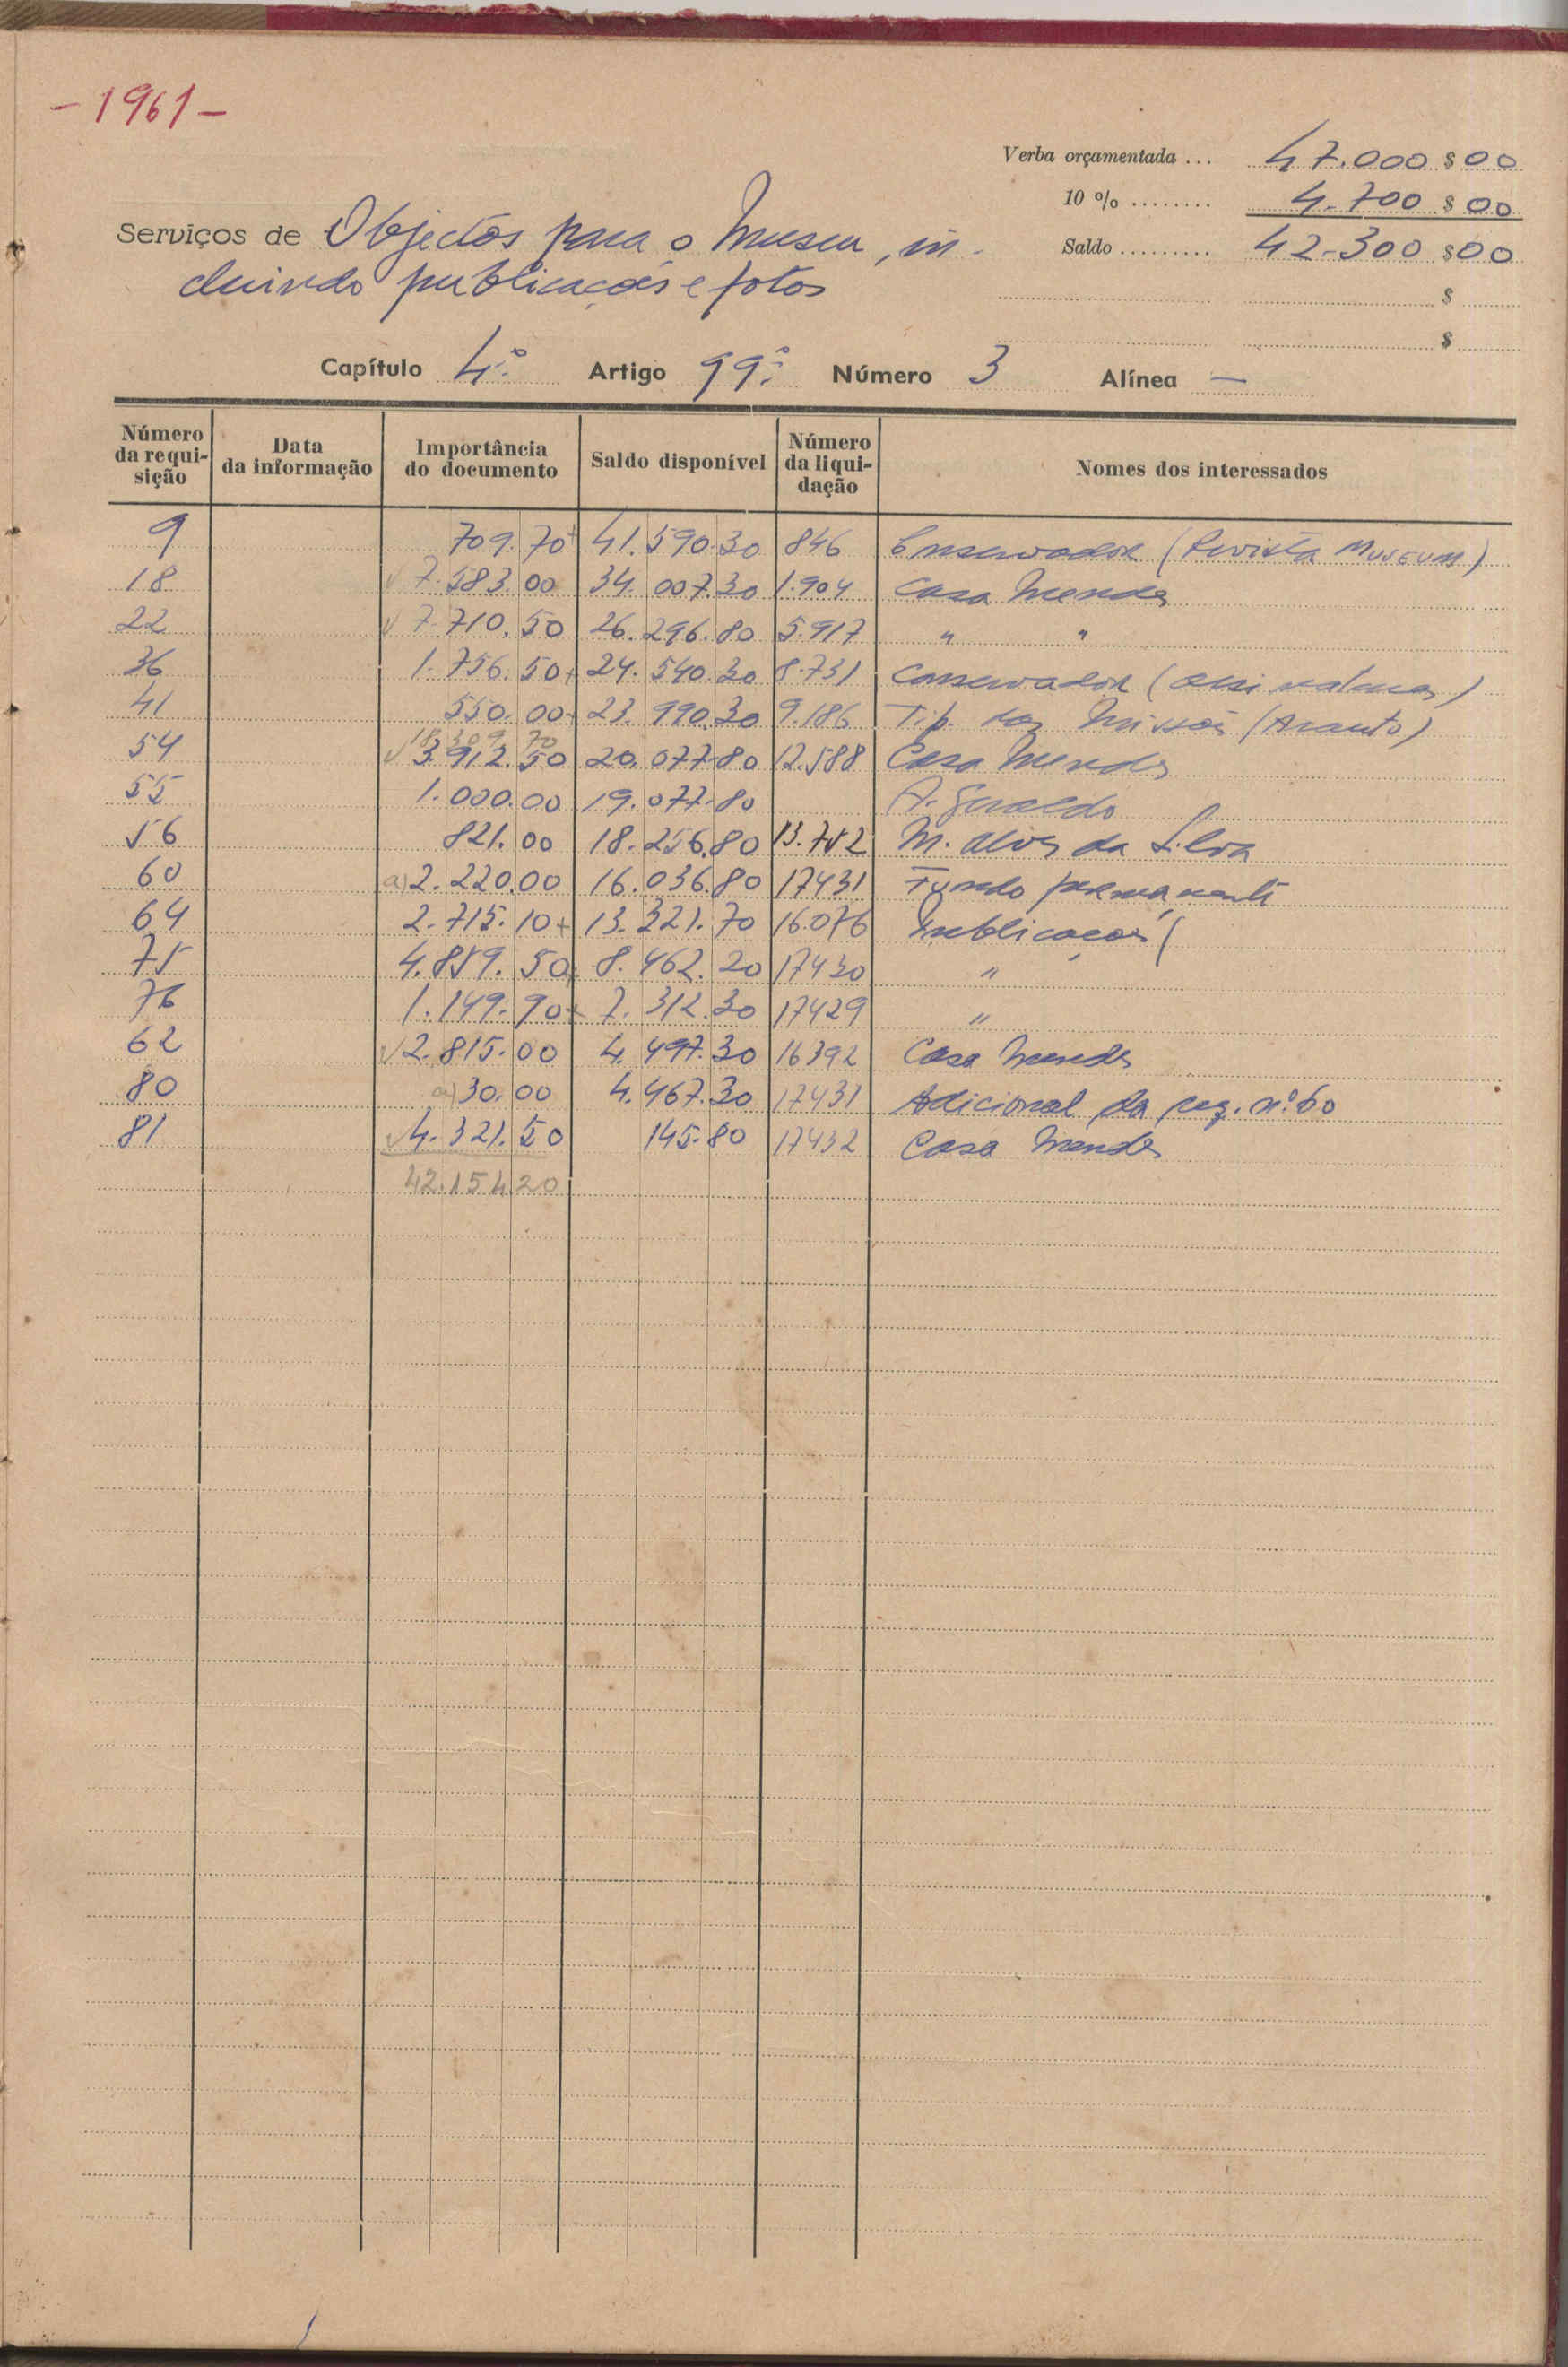 - 1961 -
Verba orçamentada ... 47.000 $ 00
10 % ........ 4.700 $ 00
Serviços de Objectos para o Museu, in-
Saldo ......... 42.300 $ 00
cluindo publicações e fotos
$
$
Capítulo 4.º Artigo 99.º Número 3 Alínea —
Número da requisição Data da informação Importância do documento Saldo disponível Número da liquidação Nomes dos interessados
9 709.70+ 41.590.30 846 Conservador (Revista MUSEUM)
18 √ 7.583.00 34.007.30 1.904 Casa Mendes
22 √ 7.710.50 26.296.80 5.917 " "
36 1.756.50+ 24.540.30 8.731 Conservador (assinaturas)
41 550.00+ 23.990.30 9.186 Tip. das Missões (Arauto)
18.309.70
54 √ 3.912.50 20.077.80 12.588 Casa Mendes
55 1.000.00 19.077.80 A. Geraldo
56 821.00 18.256.80 13.752 M. Alves da Silva
60 a) 2.220.00 16.036.80 17431 Fundo permanente
64 2.715.10+ 13.321.70 16.076 Publicações (
75 4.859.50+ 8.462.20 17430 "
76 1.149.90+ 7.312.30 17429 "
62 √ 2.815.00 4.497.30 16392 Casa Mendes
80 a) 30.00 4.467.30 17431 Adicional da req. nº 60
81 √ 4.321.50 145.80 17432 Casa Mendes
42.154.20